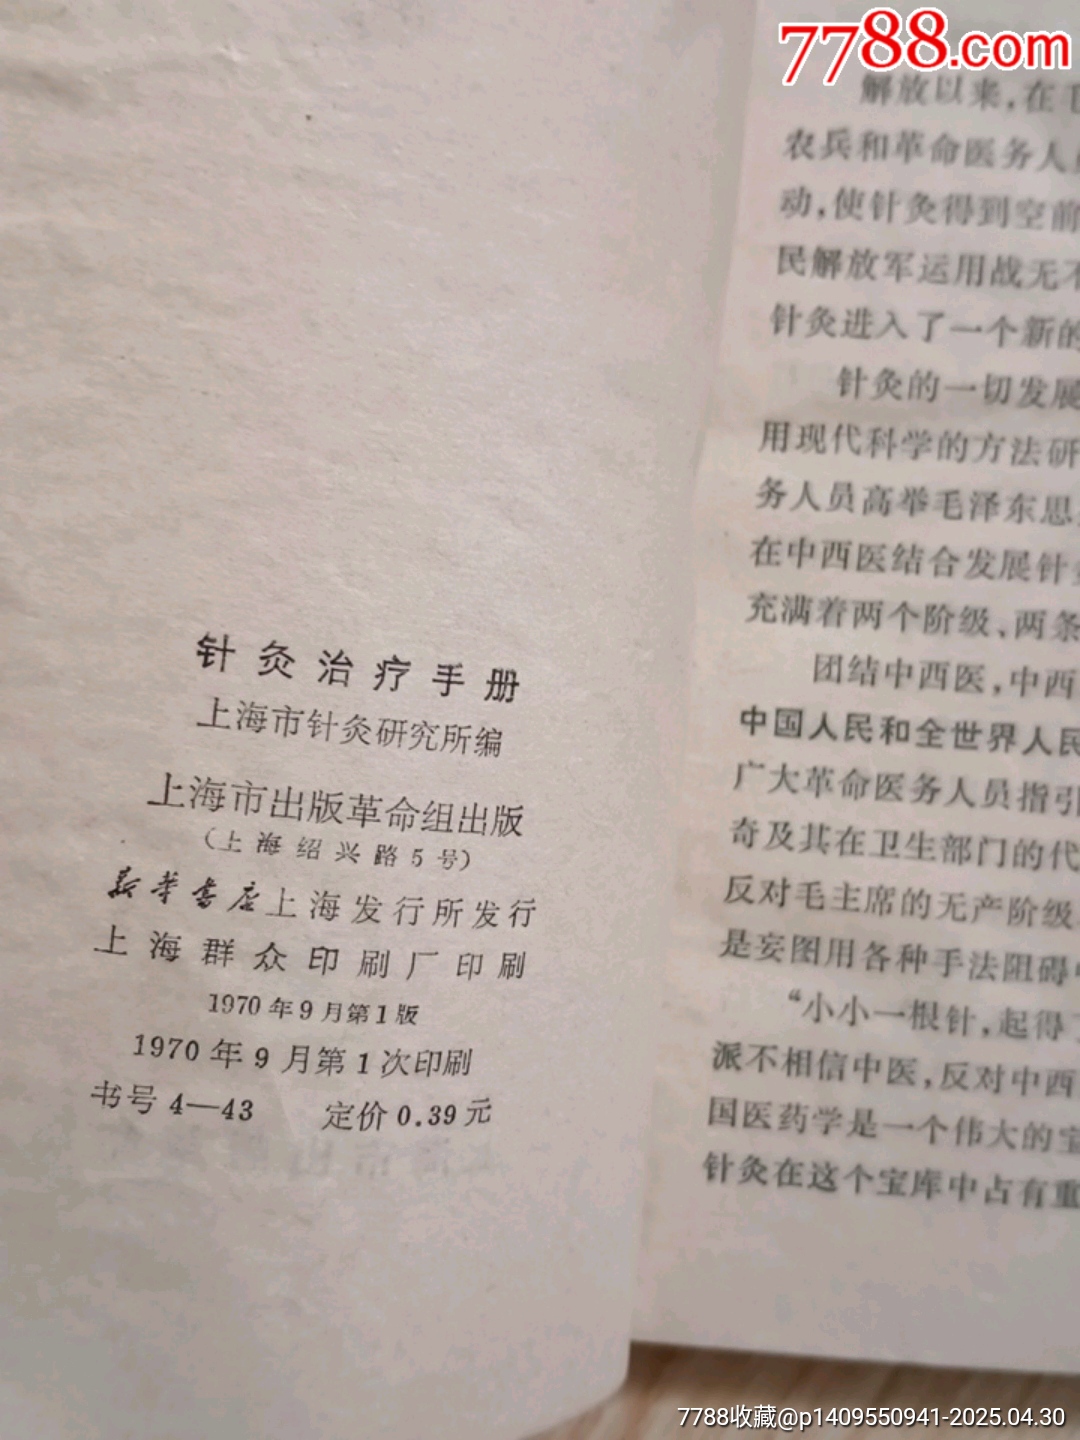 7788.com
针灸治疗手册
上海市针灸研究所编
上海市出版革命组出版
(上海绍兴路5号)
新华书店上海发行所发行
上海群众印刷厂印刷
1970年9月第1版
1970年9月第1次印刷
书号 4—43 定价 0.39元
解放以来,在毛
农兵和革命医务人员
动,使针灸得到空前
民解放军运用战无不
针灸进入了一个新的
针灸的一切发展
用现代科学的方法研
务人员高举毛泽东思
在中西医结合发展针灸
充满着两个阶级、两条
团结中西医,中西
中国人民和全世界人民
广大革命医务人员指引
奇及其在卫生部门的代
反对毛主席的无产阶级
是妄图用各种手法阻碍中
“小小一根针,起得了
派不相信中医,反对中西
国医药学是一个伟大的宝
针灸在这个宝库中占有重
7788收藏@p1409550941-2025.04.30